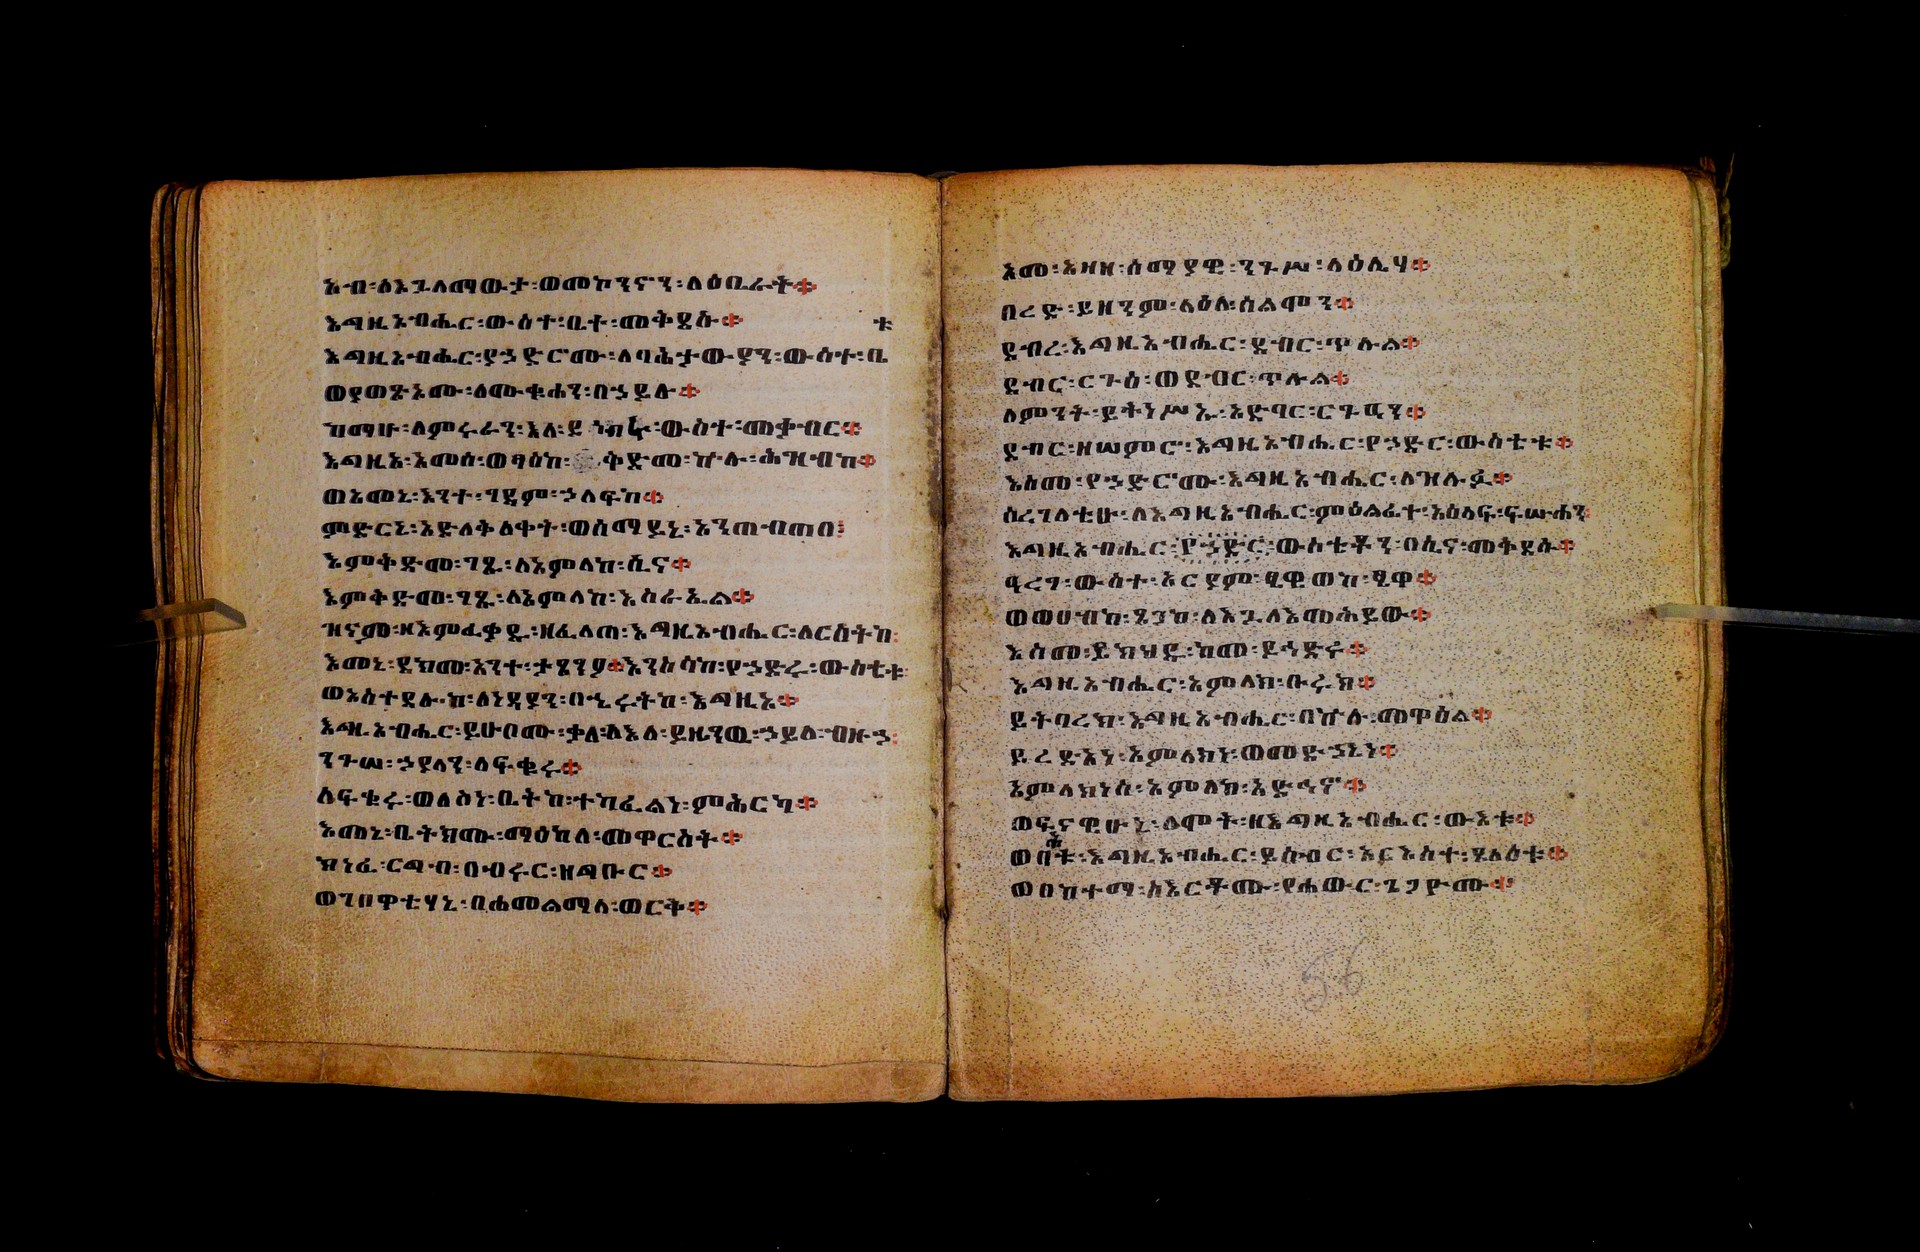 አብ፡ ለእጓለማውታ፡ ወመኮንኖን፡ ለዕቤራት፨
እግዚአብሔር፡ ውስተ፡ ቤተ፡ መቅደሱ፨
እግዚአብሔር፡ ያኃድሮሙ፡ ለባሕታውያን፡ ውስተ፡ ቤ
ቱ
ወያወጽኦሙ፡ ለሙቁሐን፡ በኃይሉ፨
ከማሁ፡ ለምሩራን፡ እለ፡ ይ ኀድሩ፡ ውስተ፡ መቃብር፨
እግዚኦ፡ አመሰ፡ ወፃዕከ፡ ቅድመ፡ ኵሉ፡ ሕዝብከ፨
ወእመኒ፡ እንተ፡ ገዳም፡ ኃለፍከ፨
ምድርኒ፡ አድለቅለቀት፡ ወሰማይኒ፡ አንጠብጠበ፤
እምቅድመ፡ ገጹ፡ ለአምላከ፡ ሲና፨
እምቅድመ፡ ገጹ፡ ለአምላከ፡ እስራኤል፨
ዝናመ፡ ዘእምፈቃዱ፡ ዘፈለጠ፡ እግዚአብሔር፡ ለርስትከ፡
እመኒ፡ ደክመ፡ አንተ፡ ታጸንዖ፨ እንስሳከ፡ የኃድሩ፡ ውስቴቱ፡
ወአስተደሉ፡ ከ፡ ለነዳያን፡ በኂሩትከ፡ እግዚኦ፨
እግዚአብሔር፡ ይሁቦሙ፡ ቃለ፡ ለእለ፡ ይዜንዉ፡ ኃይለ፡ ብዙኃ፡
ንጉሠ፡ ኃያላን፡ ለፍቁሩ፨
ለፍቁሩ፡ ወለስነ፡ ቤትከ፡ ተካፈልነ፡ ምሕርካ፨
እመኒ፡ ቤትክሙ፡ ማዕከለ፡ መዋርስት፨
ክነፈ፡ ርግብ፡ በብሩር፡ ዘግቡር፨
ወገበዋቲሃኒ፡ በሐመልሚለ፡ ወርቅ፨
አመ፡ አዘዘ፡ ሰማያዊ፡ ንጉሥ፡ ላዕሌሃ፨
በረድ፡ ይዘንም፡ ላዕለ፡ ሰልሞን፨
ደብረ፡ እግዚአብሔር፡ ደብር፡ ጥሉል፨
ደብር፡ ርጉዕ፡ ወደብር፡ ጥሉል፨
ለምንት፡ ይትነሥኡ፡ አድባር፡ ርጉዓን፨
ደብር፡ ዘሠምሮ፡ እግዚአብሔር፡ የኃድር፡ ውስቴቱ፨
እስመ፡ የኃድሮሙ፡ እግዚአብሔር፡ ለዝሉፉ፨
ሰረገላቲሁ፡ ለእግዚአብሔር፡ ምዕልፊተ፡ አዕላፍ፡ ፍሡሐን፡
እግዚአብሔር፡ የኃድር፡ ውስቴቶን፡ በሲና፡ መቅደሱ፨
ዓረገ፡ ውስተ፡ አርያም፡ ፄዊወከ፡ ፄዋ፨
ወወሀብከ፡ ጸጋከ፡ ለእጓለእመሕይው፨
እስመ፡ ይክህዱ፡ ከመ፡ ይኅድሩ፨
እግዚአብሔር፡ አምላክ፡ ቡሩክ፨
ይትባረክ፡ እግዚአብሔር፡ በኵሉ፡ መዋዕል፨
ይረድአነ፡ አምላክነ፡ ወመድኃኒነ፨
አምላክነሰ፡ አምላከ፡ አድኅኖ፨
ወፍናዊሁኒ፡ ለሞት፡ ዘእግዚአብሔር፡ ውእቱ፨
ወባሕቱ፡ እግዚአብሔር፡ ይሰብር፡ አርእስተ፡ ጸላዕቱ፨
ወበከተማ፡ ስእርቶሙ፡ የሐውር፡ ጌጋዮሙ፨
56